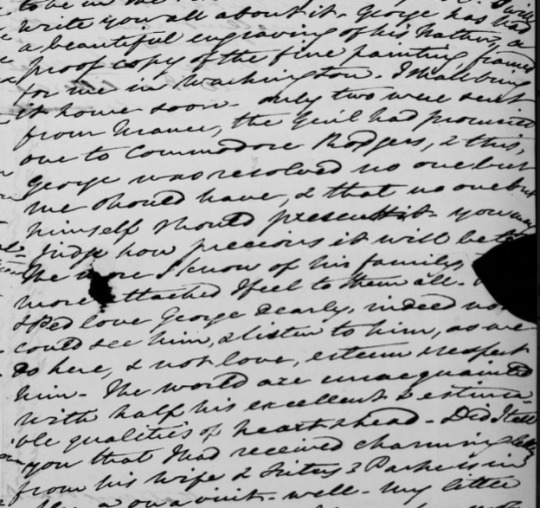 to be in
write you all about it. George has had
a beautiful engraving of his Father, a
proof copy of the fine painting framed
for me in Washington. I shall bring
it home soon. only two were sent
from the Genl had promised
one to Commodore Rodgers, & this,
George was resolved no one but
me should have, & that no one but
himself should present it you may
judge how precious it will be to
the more I know of his family
more attached I feel to them all.
love George dearly, indeed
could see him, & listen to him, as we
do here, & not love, esteem & respect
him. The world are unacquainted
with half his excellent & estima
ble qualities of heart & head. Did I tell
you that I had received charming
from his wife & & Parke is in
on a visit. well. my letter